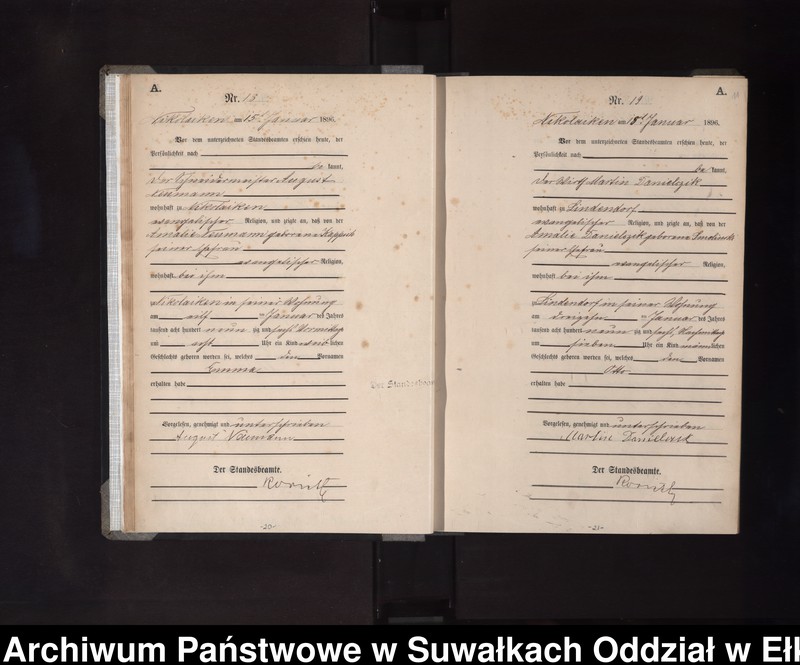 A.
Nr. 18
Nikolaiken am 15t Januar 1896.
Vor dem unterzeichneten Standesbeamten erschien heute, der
Persönlichkeit nach
be kannt,
der Schneidermeister August
Neumann
wohnhaft zu Nikolaiken
evangelischer Religion, und zeigte an, daß von der
Amalie Neumann geborene
seiner Ehefrau
evangelischer Religion,
wohnhaft bei ihm
zu Nikolaiken in seiner Wohnung
am elf ten Januar des Jahres
tausend acht hundert neun zig und sechs Vormittags
um acht Uhr ein Kind weib lichen
Geschlechts geboren worden sei, welches den Vornamen
Emma
erhalten habe
Vorgelesen, genehmigt und unterschrieben
August Neumann
Der Standesbeamte.
-20-
Der Standesbeam
A.
Nr. 19
Nikolaiken am 18t Januar 1896.
Vor dem unterzeichneten Standesbeamten erschien heute, der
Persönlichkeit nach
be kannt,
der Wirth Martin Danielzik
wohnhaft zu Lindendorf
evangelischer Religion, und zeigte an, daß von der
Amalie Danielzik geborene
seiner Ehefrau
evangelischer Religion,
wohnhaft bei ihm
zu Lindendorf in seiner Wohnung
am dreizehn ten Januar des Jahres
tausend acht hundert neun zig und sechs, Nachmittags
um sieben Uhr ein Kind männ lichen
Geschlechts geboren worden sei, welches den Vornamen
Otto
erhalten habe
Vorgelesen, genehmigt und unterschrieben
Martin Danielzik
Der Standesbeamte.
-21-
Archiwum Państwowe w Suwałkach Oddział w Ełk